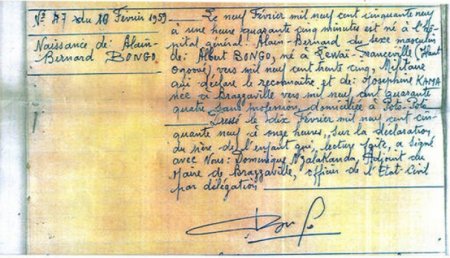 N° 47 du 18 Février 1959.
Naissance de: Alain-
Bernard BONGO.
Le neuf Février mil neuf cent cinquante neuf
à une heure quarante cinq minutes est né à l'Hô-
pital général: Alain-Bernard du sexe masculin
de Albert BONGO, né à Lewai-Franceville (Haut
Ogooué) vers mil neuf cent trente cinq, Militaire
qui déclare le reconnaître et de Joséphine KAMA
née à Brazzaville vers mil neuf cent quarante
quatre, sans profession, domiciliée à Poto-Poto
Dressé le dix Février mil neuf cent cin-
quante neuf à onze heures, sur la déclaration
du père de l'enfant qui, lecture faite, a signé
avec Nous: Dominique Nzalakanda, Adjoint du
Maire de Brazzaville, officier de l'Etat-Civil
par délégation